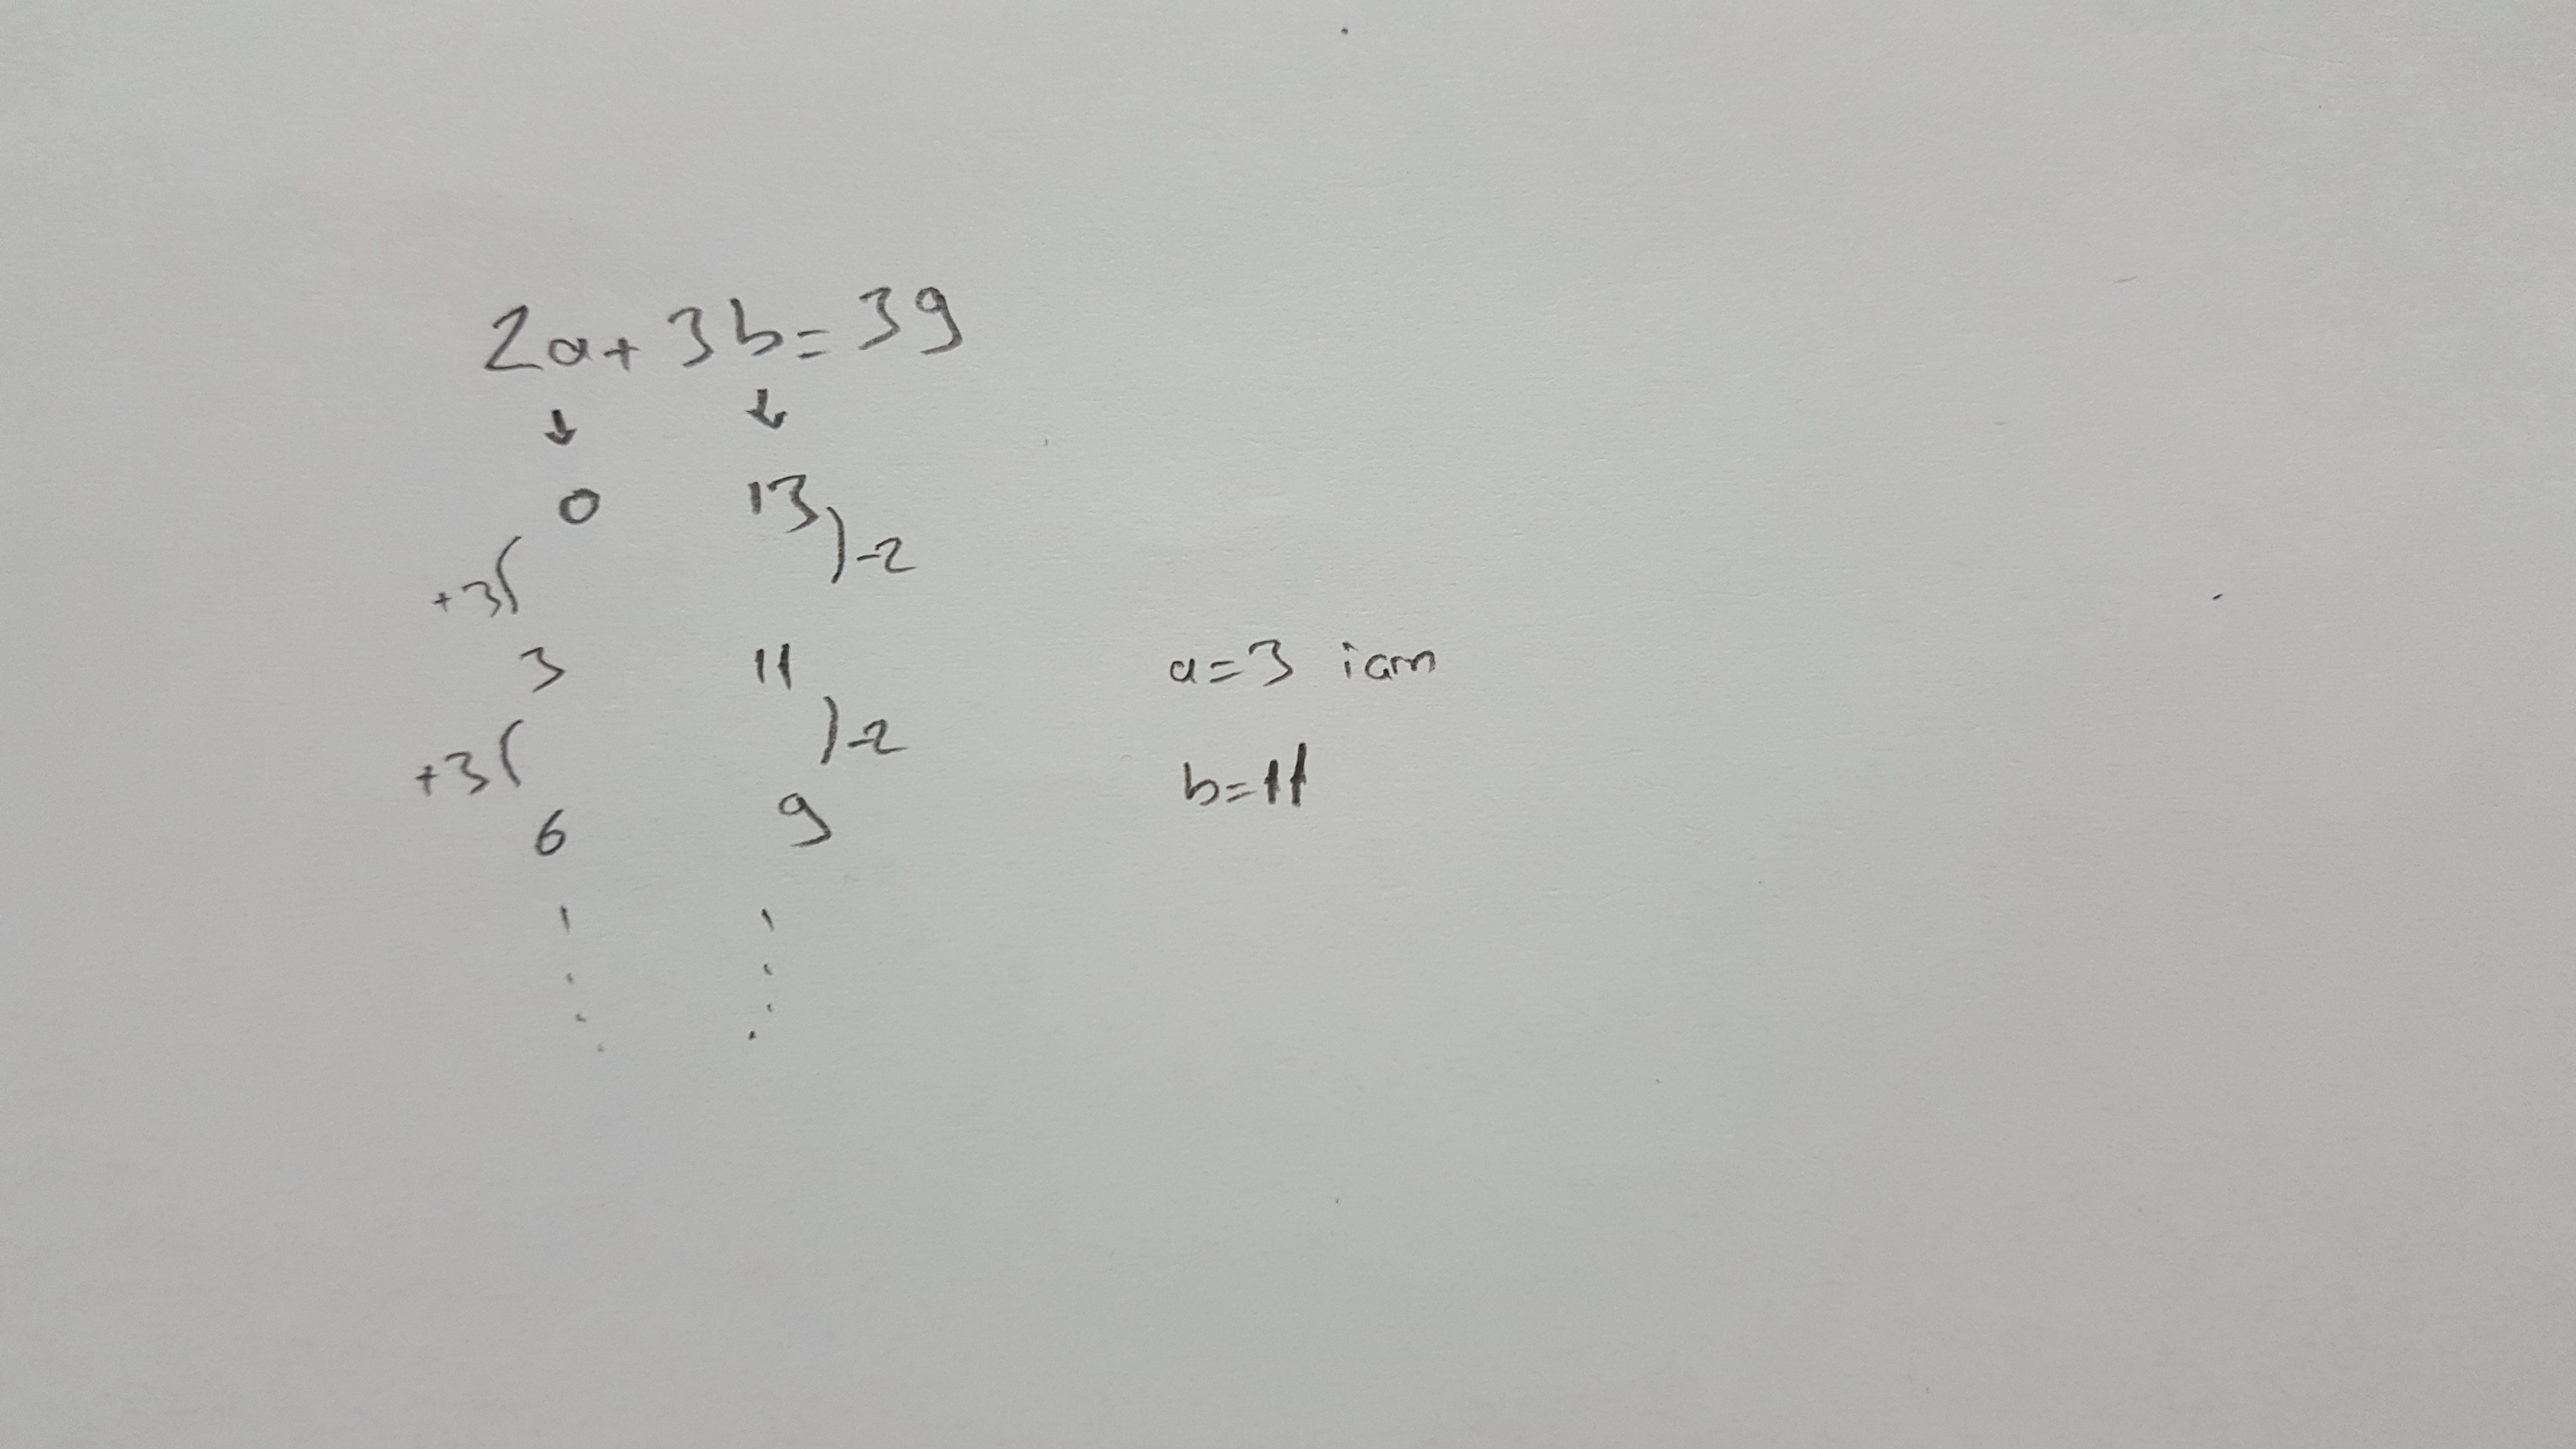 2a + 3b = 39
↓ ↓
0 13
+3( )-2
3 11
+3( )-2
6 9
a = 3 iam
b = 11